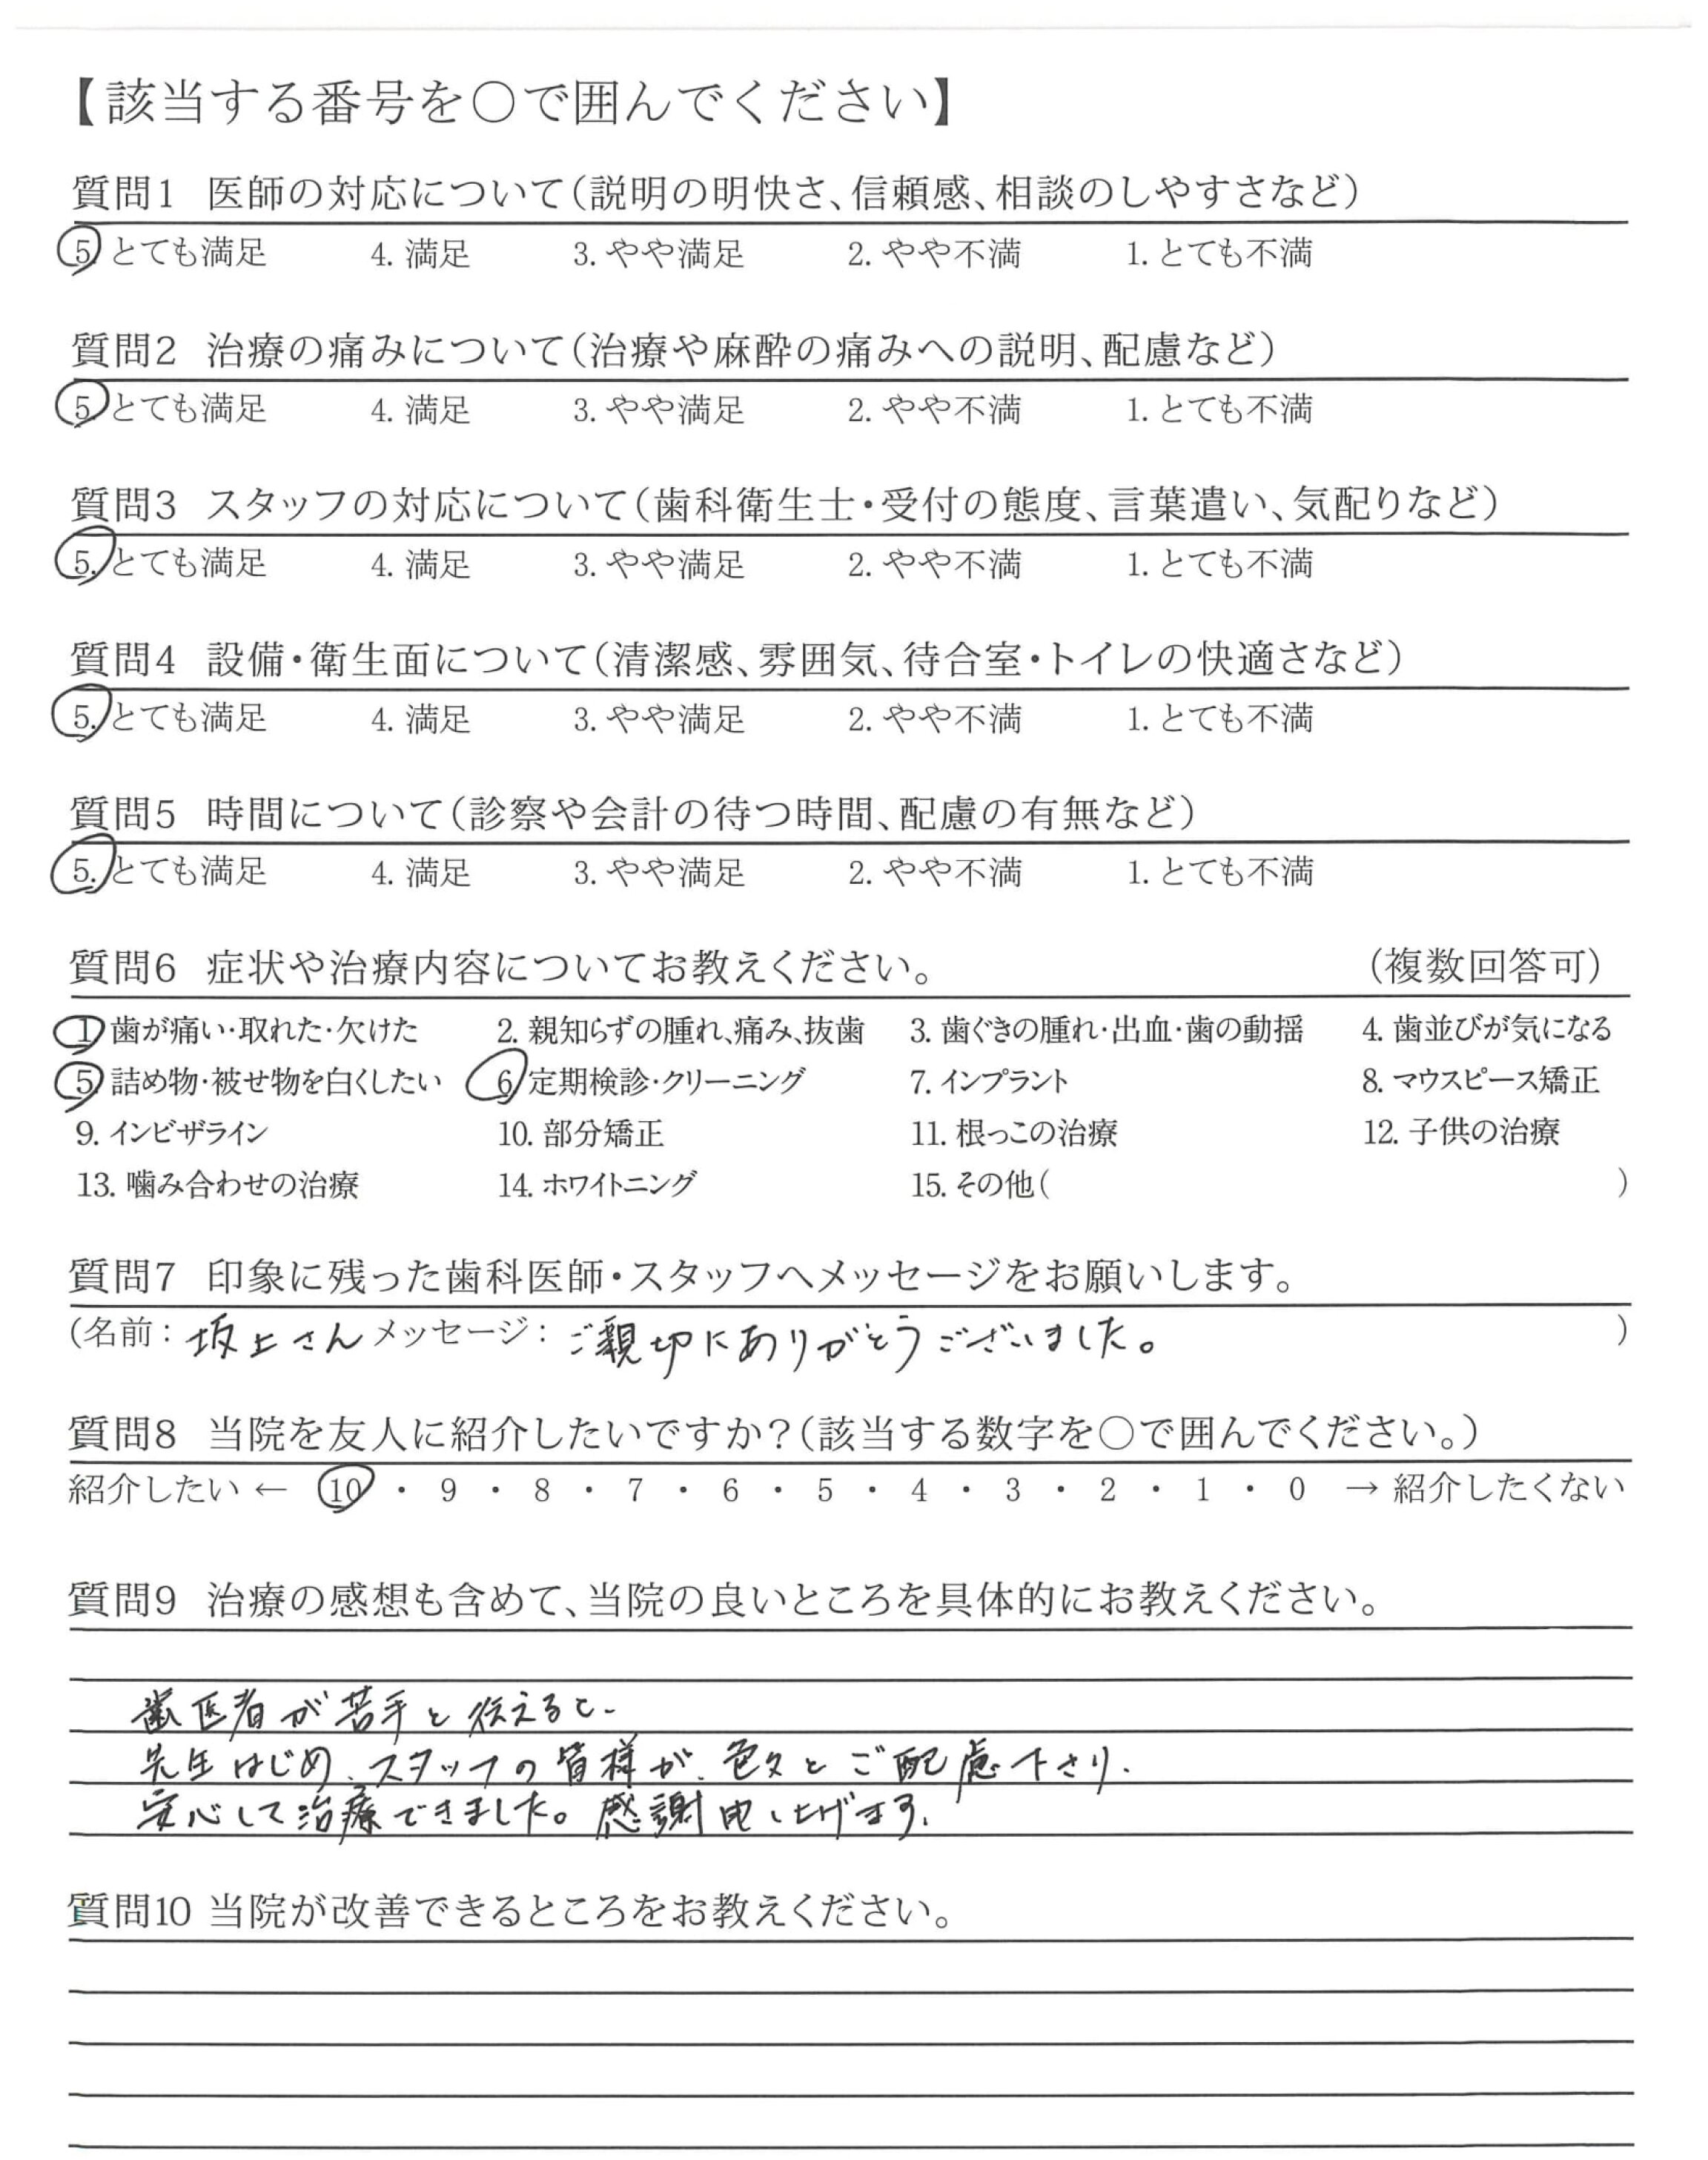 【該当する番号を○で囲んでください】
質問1 医師の対応について(説明の明快さ、信頼感、相談のしやすさなど)
5. とても満足 4. 満足 3. やや満足 2. やや不満 1. とても不満
質問2 治療の痛みについて(治療や麻酔の痛みへの説明、配慮など)
5. とても満足 4. 満足 3. やや満足 2. やや不満 1. とても不満
質問3 スタッフの対応について(歯科衛生士・受付の態度、言葉遣い、気配りなど)
5. とても満足 4. 満足 3. やや満足 2. やや不満 1. とても不満
質問4 設備・衛生面について(清潔感、雰囲気、待合室・トイレの快適さなど)
5. とても満足 4. 満足 3. やや満足 2. やや不満 1. とても不満
質問5 時間について(診察や会計の待つ時間、配慮の有無など)
5. とても満足 4. 満足 3. やや満足 2. やや不満 1. とても不満
質問6 症状や治療内容についてお教えください。 (複数回答可)
1. 歯が痛い・取れた・欠けた 2. 親知らずの腫れ、痛み、抜歯 3. 歯ぐきの腫れ・出血・歯の動揺 4. 歯並びが気になる
5. 詰め物・被せ物を白くしたい 6. 定期検診・クリーニング 7. インプラント 8. マウスピース矯正
9. インビザライン 10. 部分矯正 11. 根っこの治療 12. 子供の治療
13. 噛み合わせの治療 14. ホワイトニング 15. その他( )
質問7 印象に残った歯科医師・スタッフへメッセージをお願いします。
(名前: 坂上さん メッセージ: ご親切にありがとうございました。 )
質問8 当院を友人に紹介したいですか?(該当する数字を○で囲んでください。)
紹介したい ← 10 ・ 9 ・ 8 ・ 7 ・ 6 ・ 5 ・ 4 ・ 3 ・ 2 ・ 1 ・ 0 → 紹介したくない
質問9 治療の感想も含めて、当院の良いところを具体的にお教えください。
歯医者が苦手と伝えると、
先生はじめ、スタッフの皆様が、色々とご配慮下さり、
安心して治療できました。感謝申し上げます。
質問10 当院が改善できるところをお教えください。